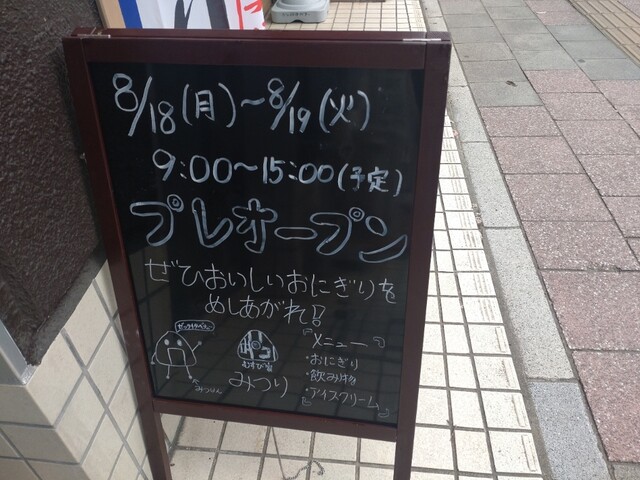 8/18(月)~8/19(火)
9:00~15:00(予定)
プレオープン
ぜひおいしいおにぎりを
めしあがれ!
メニュー
・おにぎり
・飲み物
・アイスクリーム
むすび家
みつり